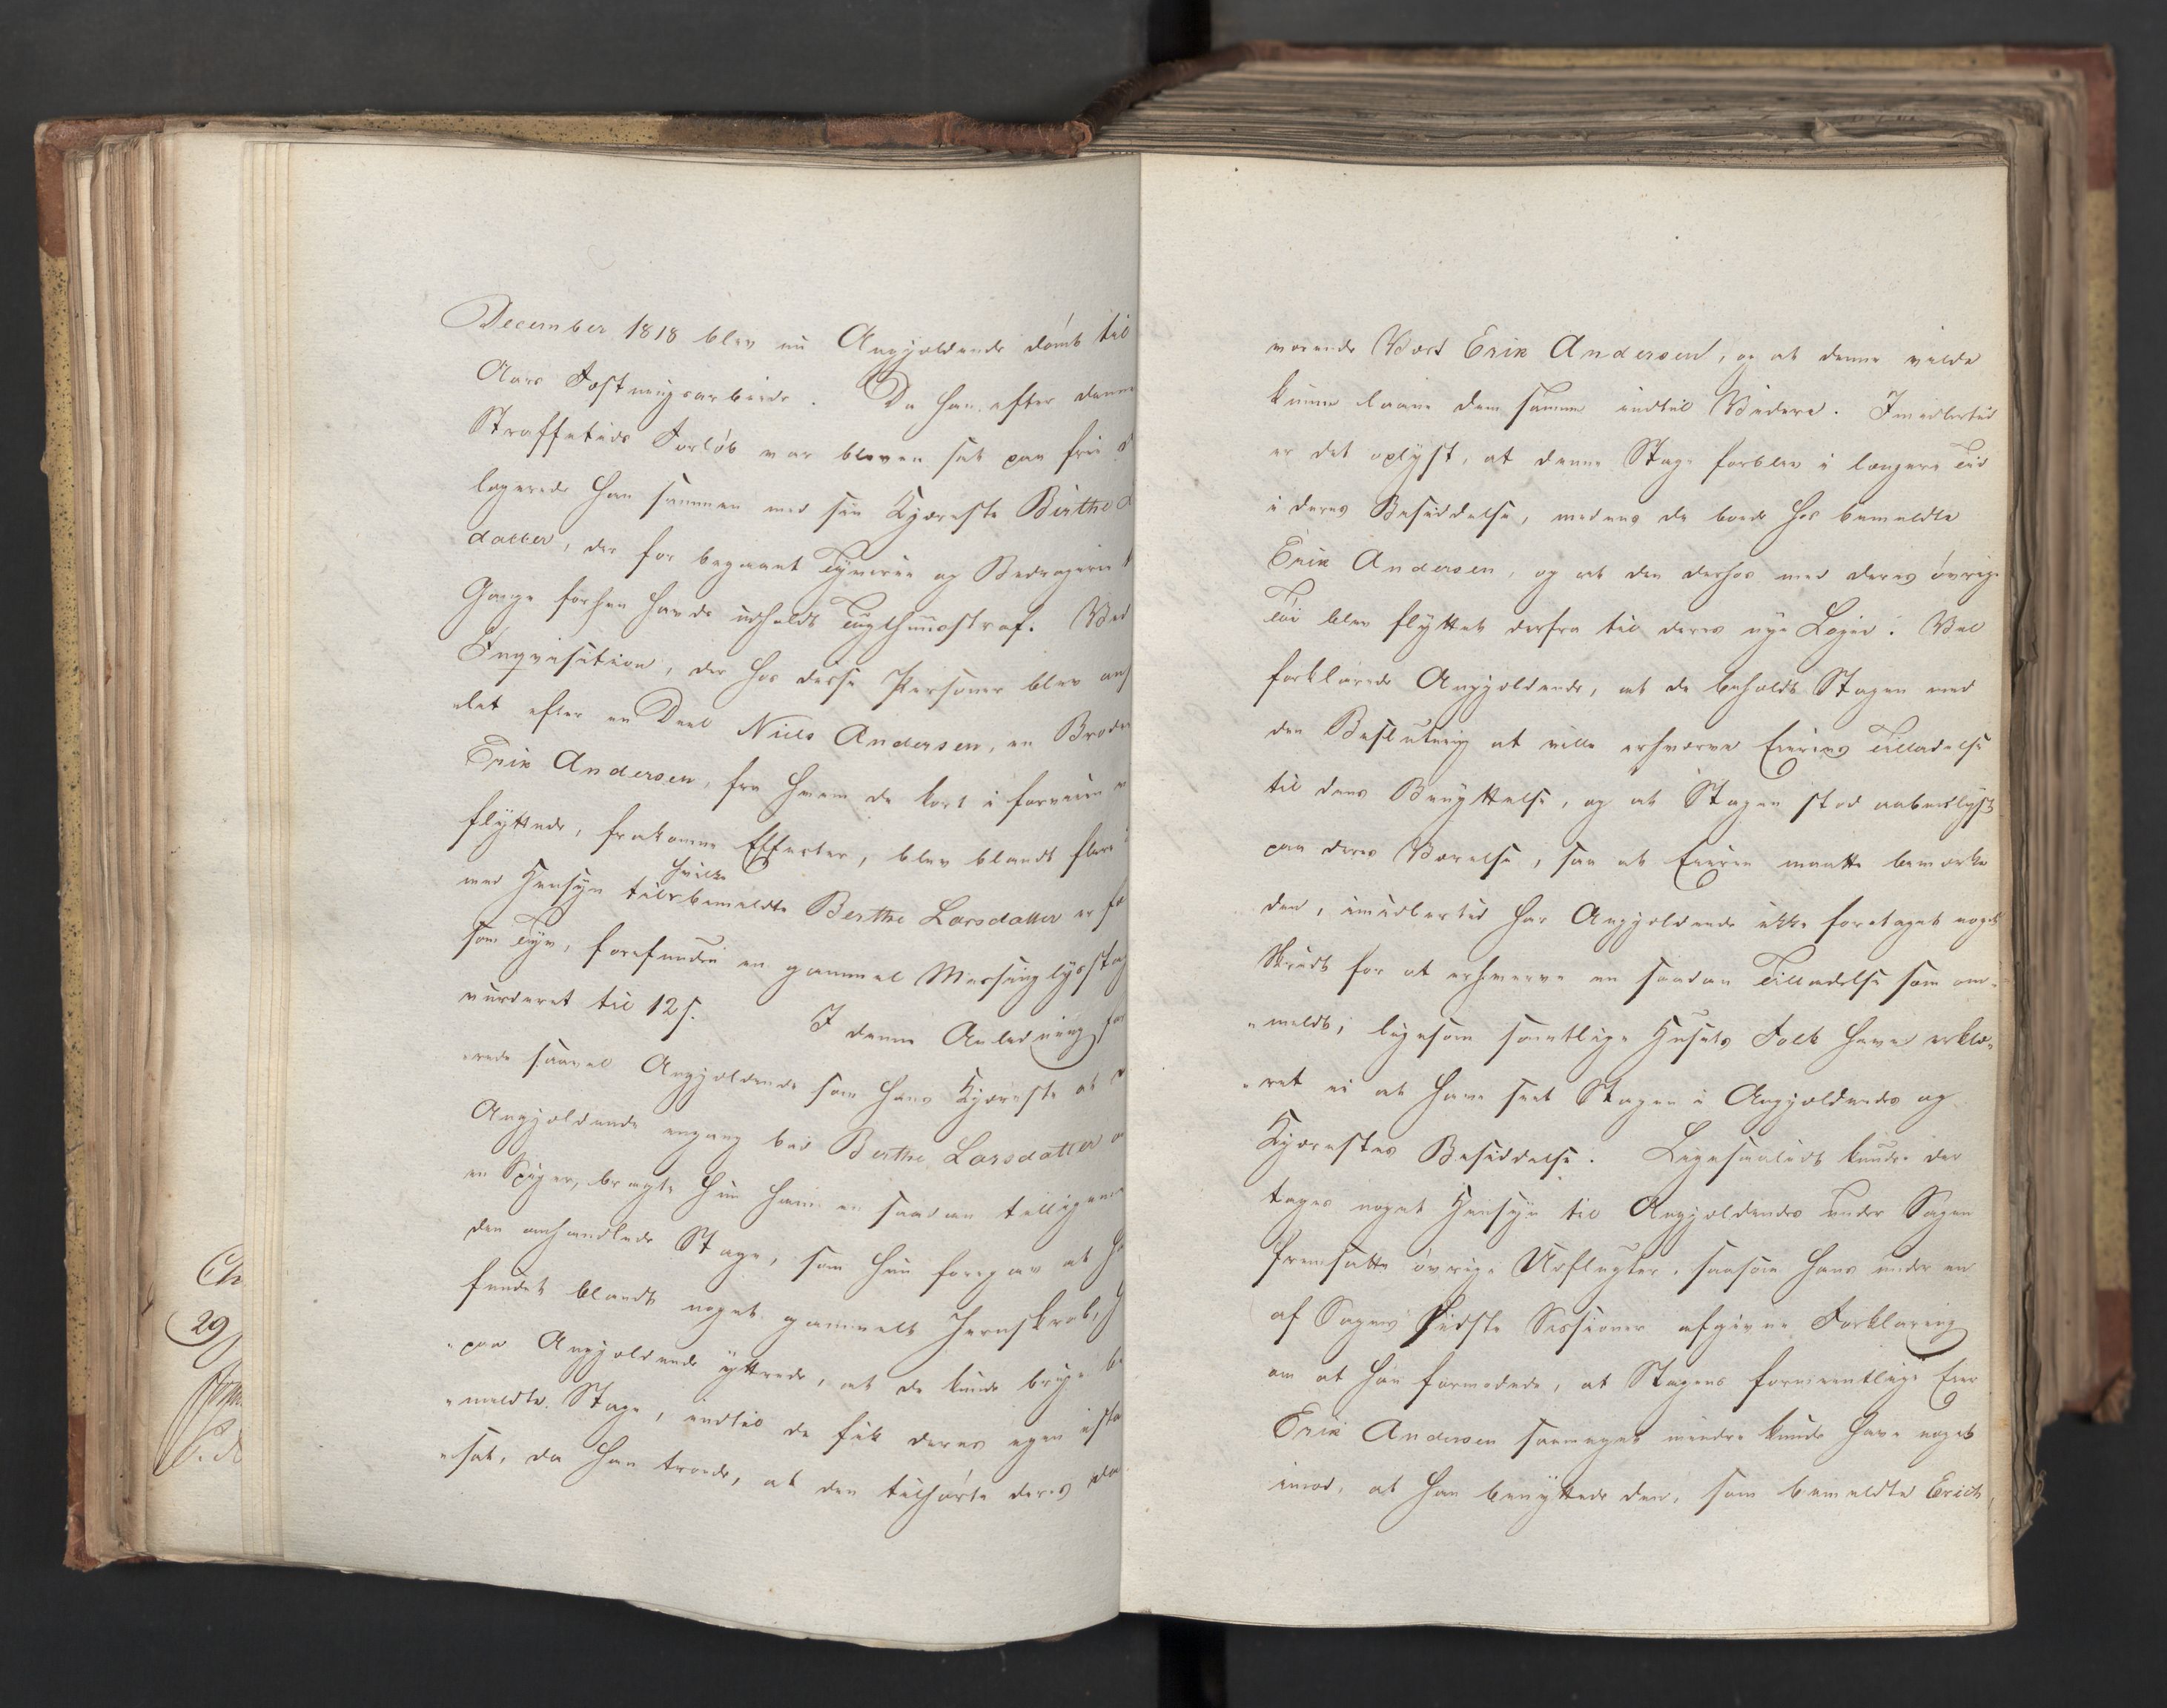 December 1818 blev nu Angjældende dømt til
Aars Fæstningsarbeide. Da han efter denne
Straffetids Forløb var bleven sat paa frie
logerede han sammen med sin Kjæreste Birthe
datter, der for begaaet Tyverie og Bedragerie
Gange forhen havde udholdt Tugthuusstraf. Ved
Inqvisition, der hos disse Personer blev an
slet efter en Deel Niels Andersen, en Broder
Erik Andersen, fra hvem de kort i forveien
flyttede, frakomne Effecter, blev blandt flere
hvilke
med Hensyn til bemeldte Berthe Larsdatter er
som Tyv, forefunden en gammel Messinglysestag
vurderet til 12 s. I denne Anledning for
rede saavel Angjældende som hans Kjæreste at
Angjældende engang bad Berthe Larsdatter
en Spiger, bragte hun ham en saadan tilligemed
den omhandlede Stage, som hun foregav at
fundet blandt noget gammelt Jernskrab,
paa Angjældende yttrede, at de kunde bruge be
meldte Stage, indtil de fik deres egen
sat, da han troede, at den tilhørte deres da
værende Vært Erik Andersen, og at denne vilde
kunne laane dem samme indtil Videre. Imidlertid
er det oplyst, at denne Stage forblev i længere Tid
i deres Besiddelse, medens de boede hos bemeldte
Erik Andersen, og at den derhos med deres øvrige
Tøi blev flyttet derfra til deres nye Logis. Vel
forklarede Angjældende, at de beholdt Stagen med
den Beslutning at ville erhverve Eierens Tilladelse
til dens Benyttelse, og at Stagen stod aabenlyst
paa deres Værelse, saa at Eieren maatte bemærke
den, imidlertid har Angjældende ikke foretaget noget
Skridt for at erhverve en saadan Tilladelse som om-
meldt, ligesom samtlige Husets Folk have erklæ-
ret ei at have seet Stagen i Angjældendes og
Kjærestes Besiddelse. Ligesaalidt kunde der
tages noget Hensyn til Angjældendes under Sagen
fremsatte øvrige Udflugter, saasom hans under en
af Sagens sidste Sessioner afgivne Forklaring
om at han formodede, at Stagens formeentlige Eier
Erik Andersen saameget mindre kunde have noget
imod, at han benyttede den, som bemeldte Erich